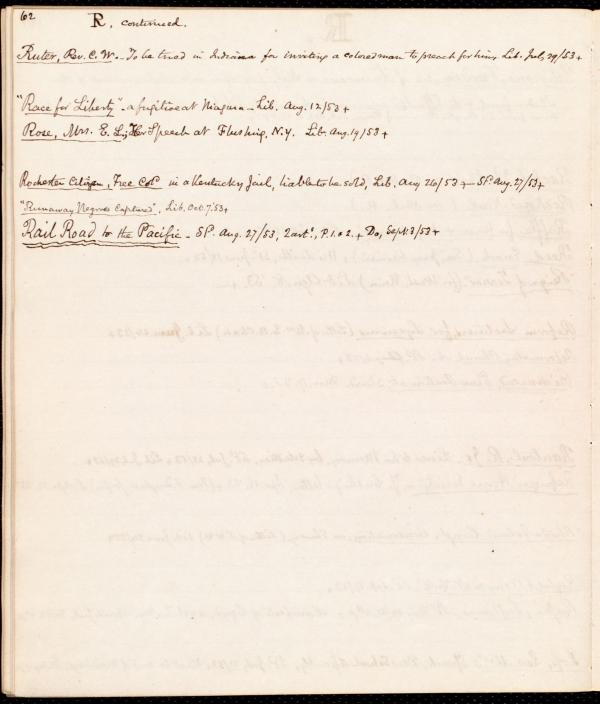 62
R. continued.
Ruter, Rev. C. W. - To be tried in Indiana for inviting a colored man to preach for him, Lib. July 29/53 +
"Race for Liberty" - a fugitive at Niagara - Lib. Aug. 12/53 +
Rose, Mrs. E. L., Her Speech at Flushing, N.Y. Lib. Aug. 19/53 +
Rochester Citizen, Free Cold. in a Kentucky Jail, liable to be sold, Lib. Aug 26/53 + - St. Aug. 27/53 +
"Runaway Negroes Captured", Lib. Oct. 7.53 +
Rail Road to the Pacific - St. Aug. 27/53, 2 arts., P. 1. & 2. + Do, Sept. 3/53 +